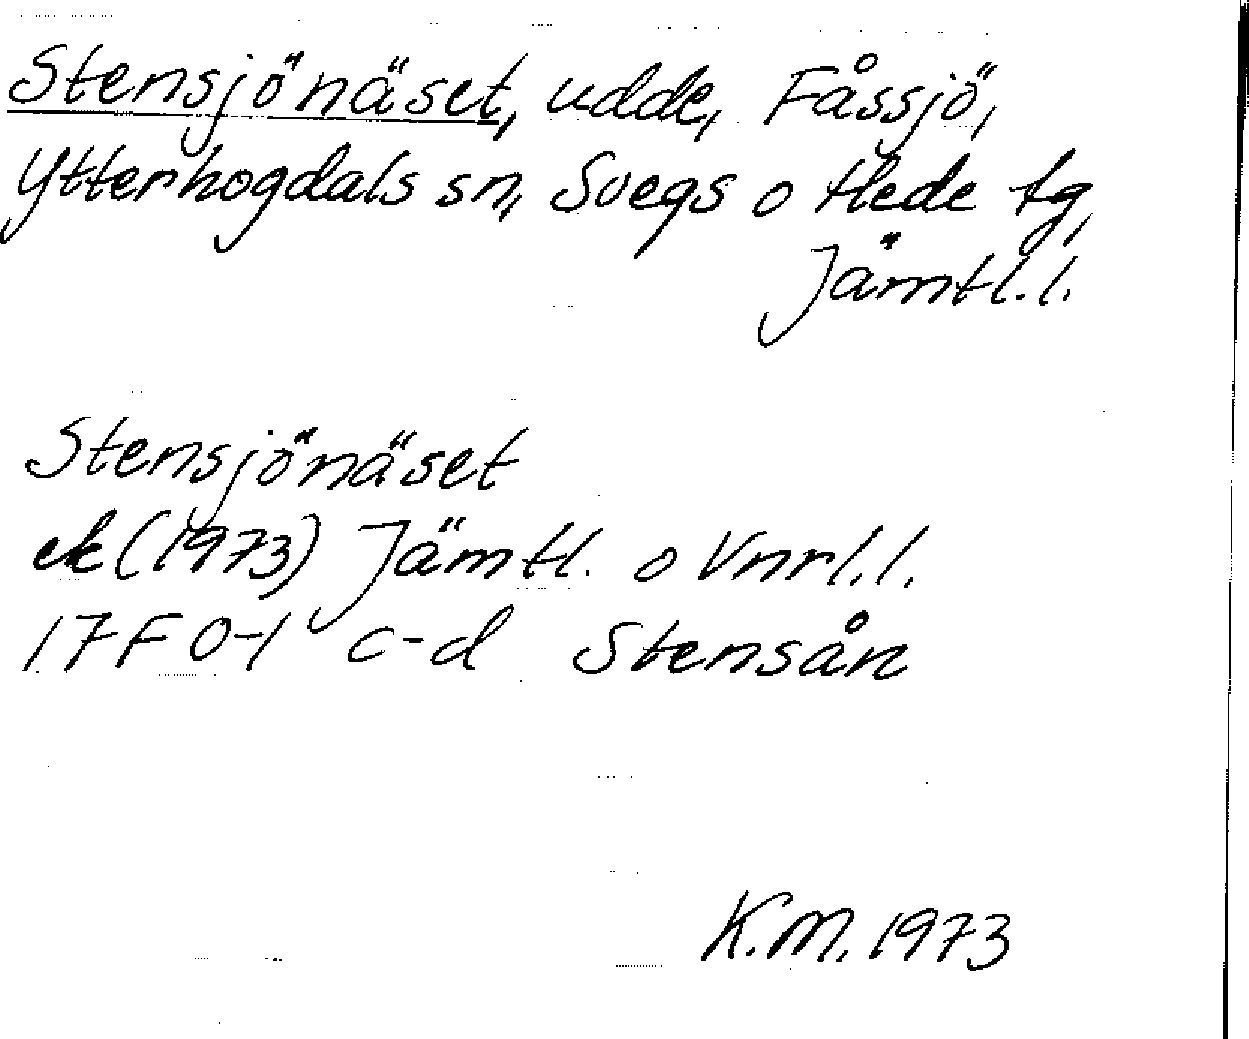 Stensjönäset, udde, Fåssjö,
Ytterhogdals sn, Svegs o Hede tg,
Jämtl.l.
Stensjönäset
ek (1973) Jämtl. o Vnrl.l.
17F 0-1 c-d Stensån
K.M. 1973